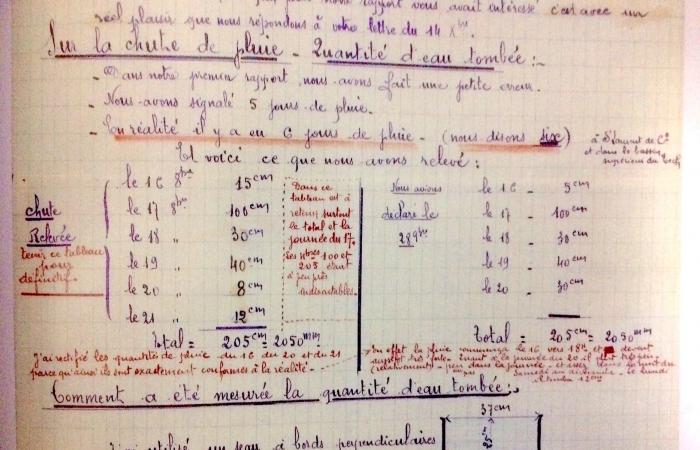 rapport vous avait intéressé c'est avec un
réel plaisir que nous répondons à votre lettre du 14 Xbre
Sur la chute de pluie - Quantité d'eau tombée :-
- Dans notre premier rapport, nous avons fait une petite erreur.
- Nous avons signalé 5 jours de pluie.
- En réalité il y a eu 6 jours de pluie - (nous disons six)
à St Laurent de C.
et dans le bassin
supérieur du Tech
Et voici ce que nous avons relevé :
chute
Relevée
tenir ce tableau
pour
définitif.
le 16 8bre 15cm
le 17 8bre 100cm
le 18 " 30cm
le 19 " 40cm
le 20 " 8cm
le 21 " 12cm
Total = 205cm = 2050mm
Dans ce
tableau est à
retenir surtout
le total et la
journée du 17.
Les nbres 100 et
205 étant
à peu près
indiscutables.
Nous avions
déclaré le
28 9bre
le 16 - 5cm
le 17 - 100cm
le 18 - 30cm
le 19 - 40cm
le 20 - 30cm
Total = 205cm = 2050mm
J'ai rectifié les quantités de pluie du 16 du 20 et du 21
parce qu'ainsi ils sont exactement conformes à la réalité -
En effet la pluie commença le 16 vers 18h et devint
aussitôt très forte. Quant à la journée du 20 il plut très peu
(relativement) - peu dans la journée - et assez dans la nuit du
Comment a été mesurée la quantité d'eau tombée :-
37cm
utilisé un seau à bords perpendiculaires